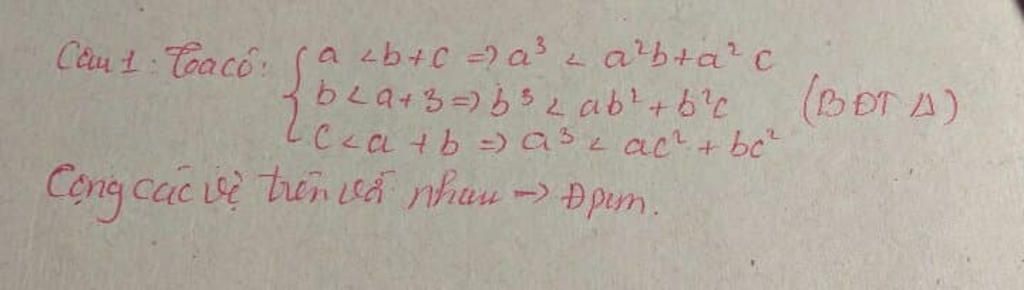 Câu 1: Ta có: { a < b + c => a³ < a²b + a²c
b < a + 3 => b³ < ab² + b²c (BĐT Δ)
c < a + b => a³ < ac² + bc²
Cộng các vế trên với nhau -> Đpcm.